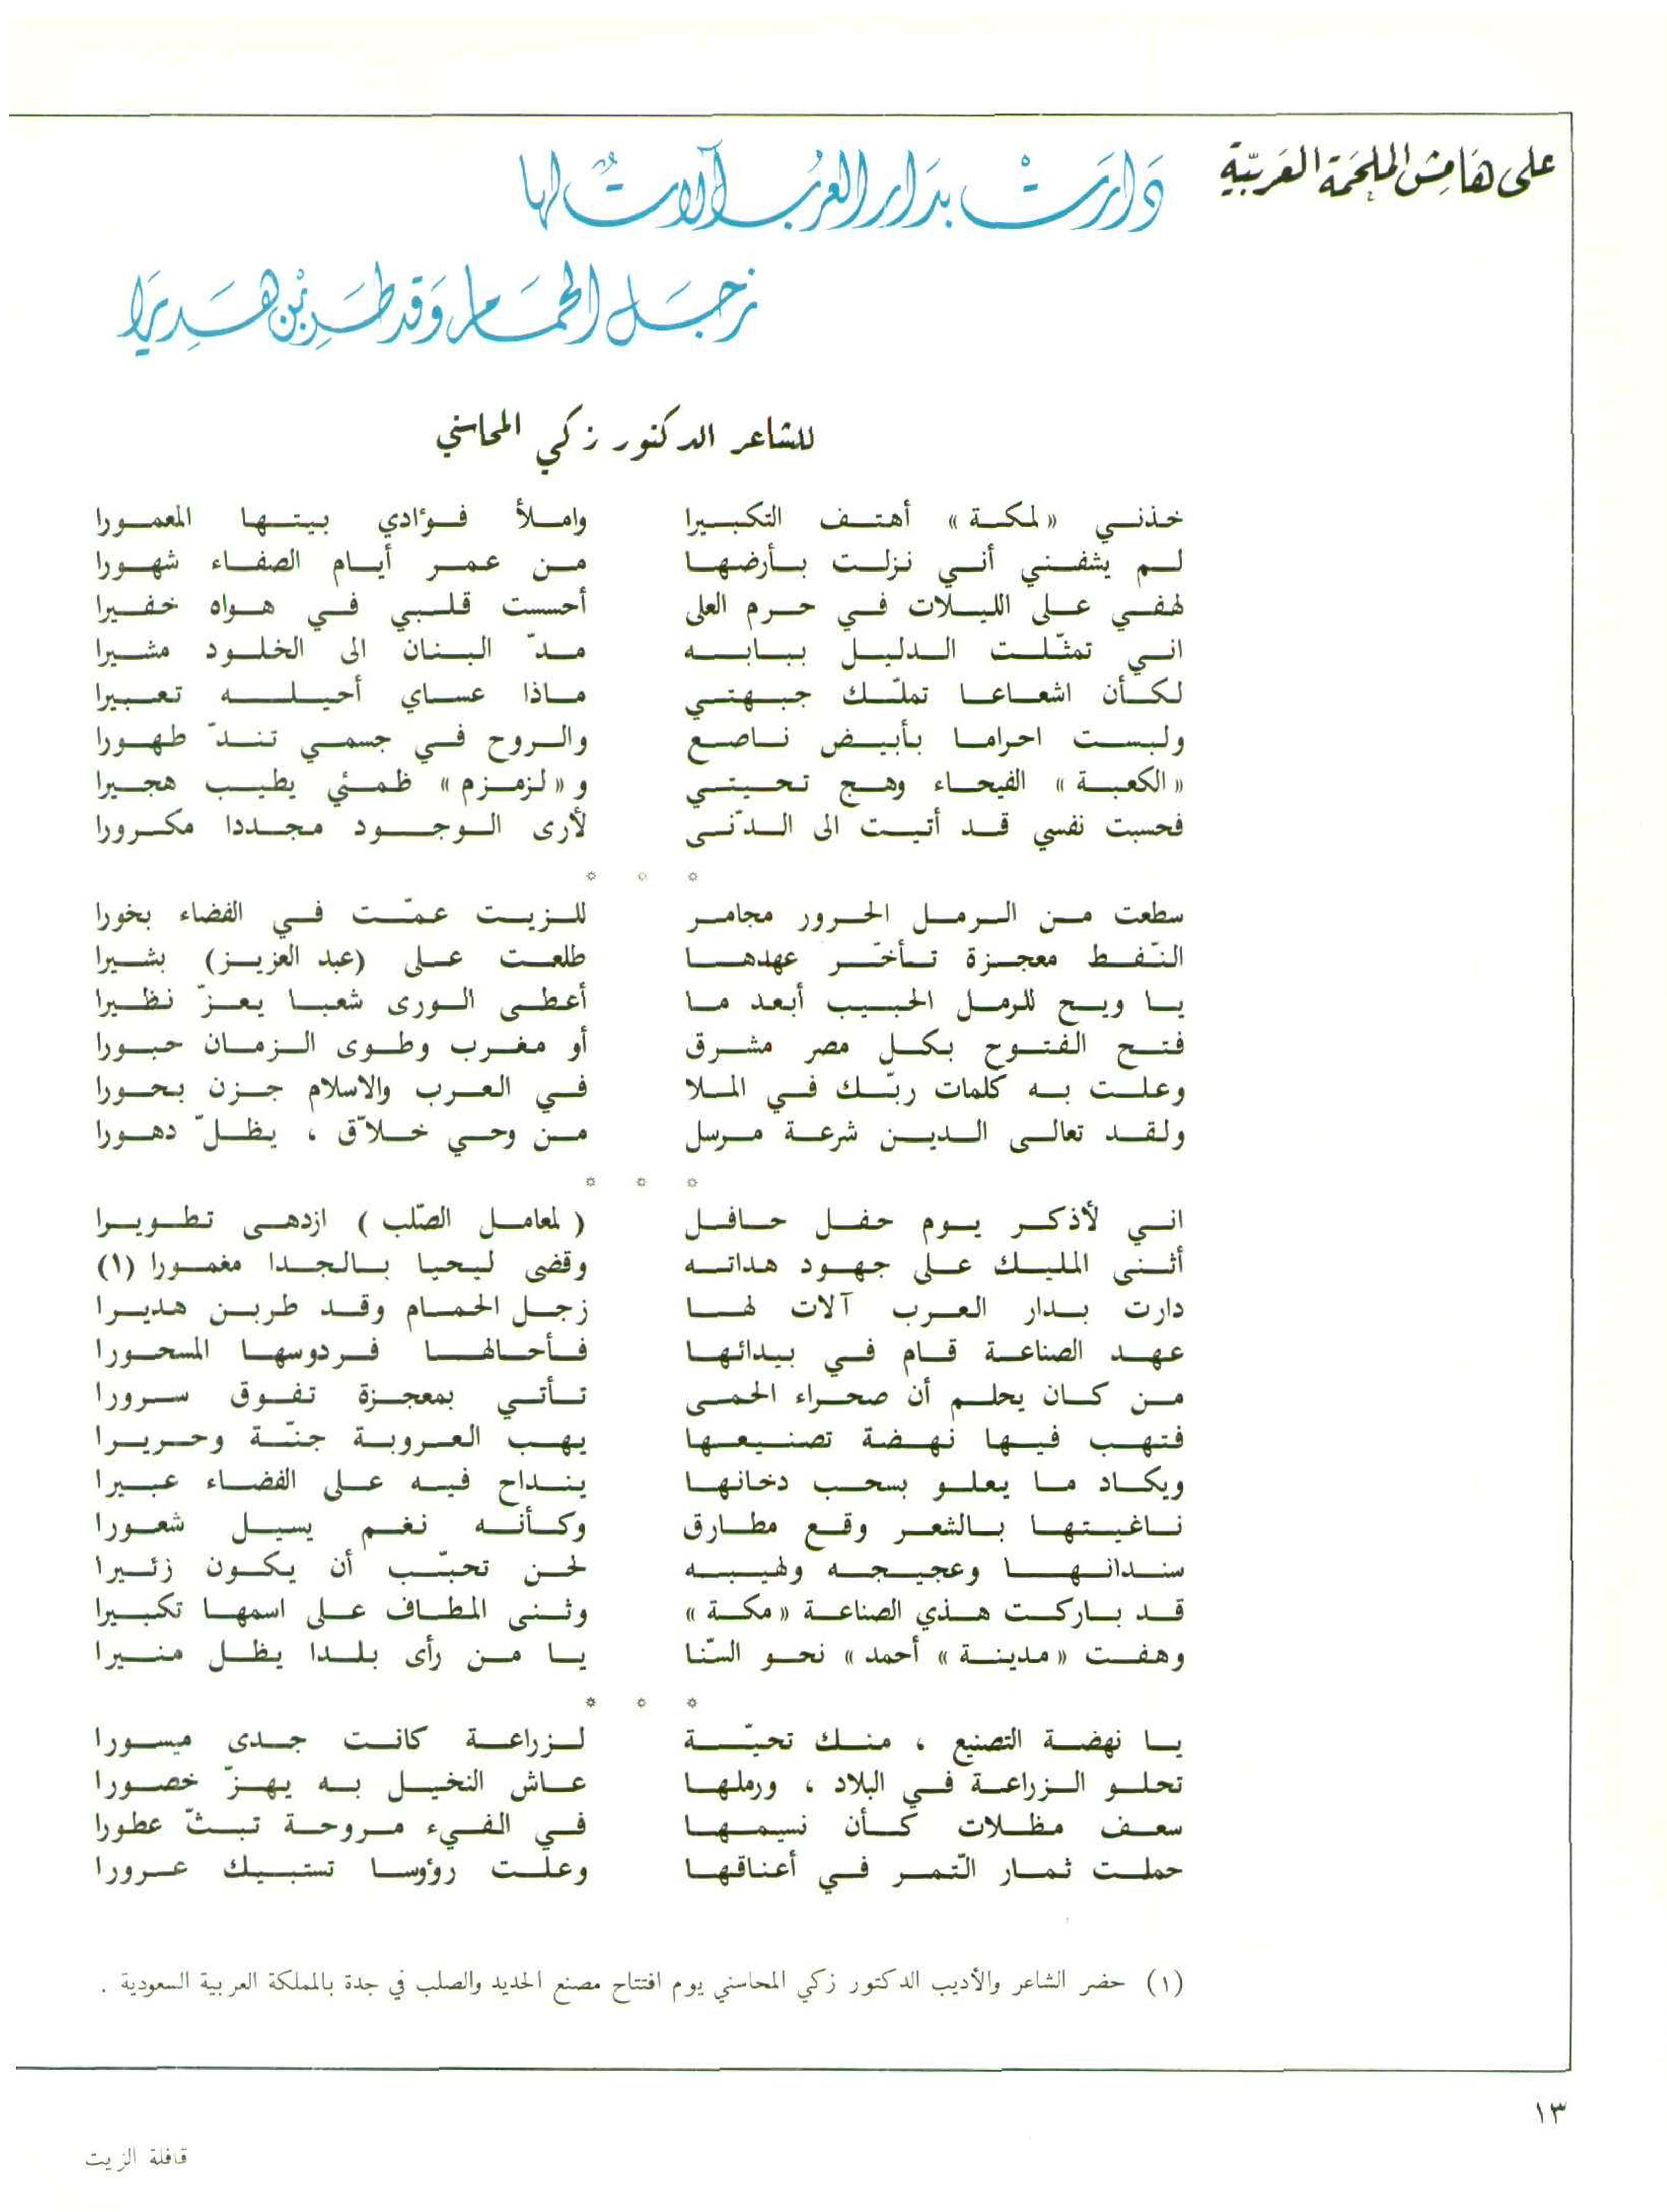 على هَامِش الملحَمَة العَربيّةِ
دَارَتْ بدَار العُرب آلاتٌ لها
زجَل الحَمَام وَقد طَرِبْن هَدِيرَا
للشاعر الدكتور زكي المحاسني
خذني «لمكة» أهتف التكبيرا واملأ فؤادي بيتها المعمورا
لم يشفني أني نزلت بأرضها من عمر أيام الصفاء شهورا
لهفي على الليلات في حرم العلى أحسست قلبي في هواه خفيرا
اني تمثّلت الدليل ببابه مدّ البنان الى الخلود مشيرا
لكأن اشعاعا تملّك جبهتي ماذا عساي أحيله تعبيرا
ولبست احراما بأبيض ناصع والروح في جسمي تندّ طهورا
«الكعبة» الفيحاء وهج تحيتي و«لزمزم» ظمئي يطيب هجيرا
فحسبت نفسي قد أتيت الى الدّنى لأرى الوجود مجددا مكرورا
* * *
سطعت من الرمل الحرور مجامر للزيت عمّت في الفضاء بخورا
النّفط معجزة تأخّر عهدها طلعت على (عبد العزيز) بشيرا
يا ويح للرمل الحبيب أبعد ما أعطى الورى شعبا يعزّ نظيرا
فتح الفتوح بكل مصر مشرق أو مغرب وطوى الزمان حبورا
وعلت به كلمات ربّك في الملا في العرب والاسلام جزن بحورا
ولقد تعالى الدين شرعة مرسل من وحي خلاّق ، يظلّ دهورا
* * *
اني لأذكر يوم حفل حافل (لمعامل الصّلب) ازدهى تطويرا
أثنى المليك على جهود هداته وقضى ليحيا بالجدا مغمورا (١)
دارت بدار العرب آلات لها زجل الحمام وقد طربن هديرا
عهد الصناعة قام في بيدائها فأحالها فردوسها المسحورا
من كان يحلم أن صحراء الحمى تأتي بمعجزة تفوق سرورا
فتهب فيها نهضة تصنيعها يهب العروبة جنّة وحريرا
ويكاد ما يعلو بسحب دخانها ينداح فيه على الفضاء عبيرا
ناغيتها بالشعر وقع مطارق وكأنه نغم يسيل شعورا
سندانها وعجيجه ولهيبه لحن تحبّب أن يكون زئيرا
قد باركت هذي الصناعة «مكة» وثنى المطاف على اسمها تكبيرا
وهفت «مدينة» أحمد» نحو السّنا يا من رأى بلدا يظل منيرا
* * *
يا نهضة التصنيع ، منك تحيّة لزراعة كانت جدى ميسورا
تحلو الزراعة في البلاد ، ورملها عاش النخيل به يهزّ خصورا
سعف مظلات كأن نسيمها في الفيء مروحة تبثّ عطورا
حملت ثمار التّمر في أعناقها وعلت رؤوسا تستبيك عرورا
(١) حضر الشاعر والأديب الدكتور زكي المحاسني يوم افتتاح مصنع الحديد والصلب في جدة بالمملكة العربية السعودية .
١٣
قافلة الزيت